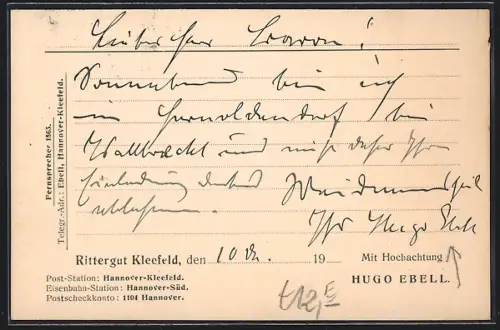 Lieber Herr Baron!
Sonnabend bin ich
in bei
und muß daher Ihre
Einladung dankend
ablehnen. Weidmannsheil
Ihr Hugo Ebell
Fernsprecher 1563.
Telegr.-Adr.: Ebell, Hannover-Kleefeld.
Rittergut Kleefeld, den 10 19
Mit Hochachtung
HUGO EBELL.
Post-Station: Hannover-Kleefeld.
Eisenbahn-Station: Hannover-Süd.
Postscheckkonto: 1104 Hannover.